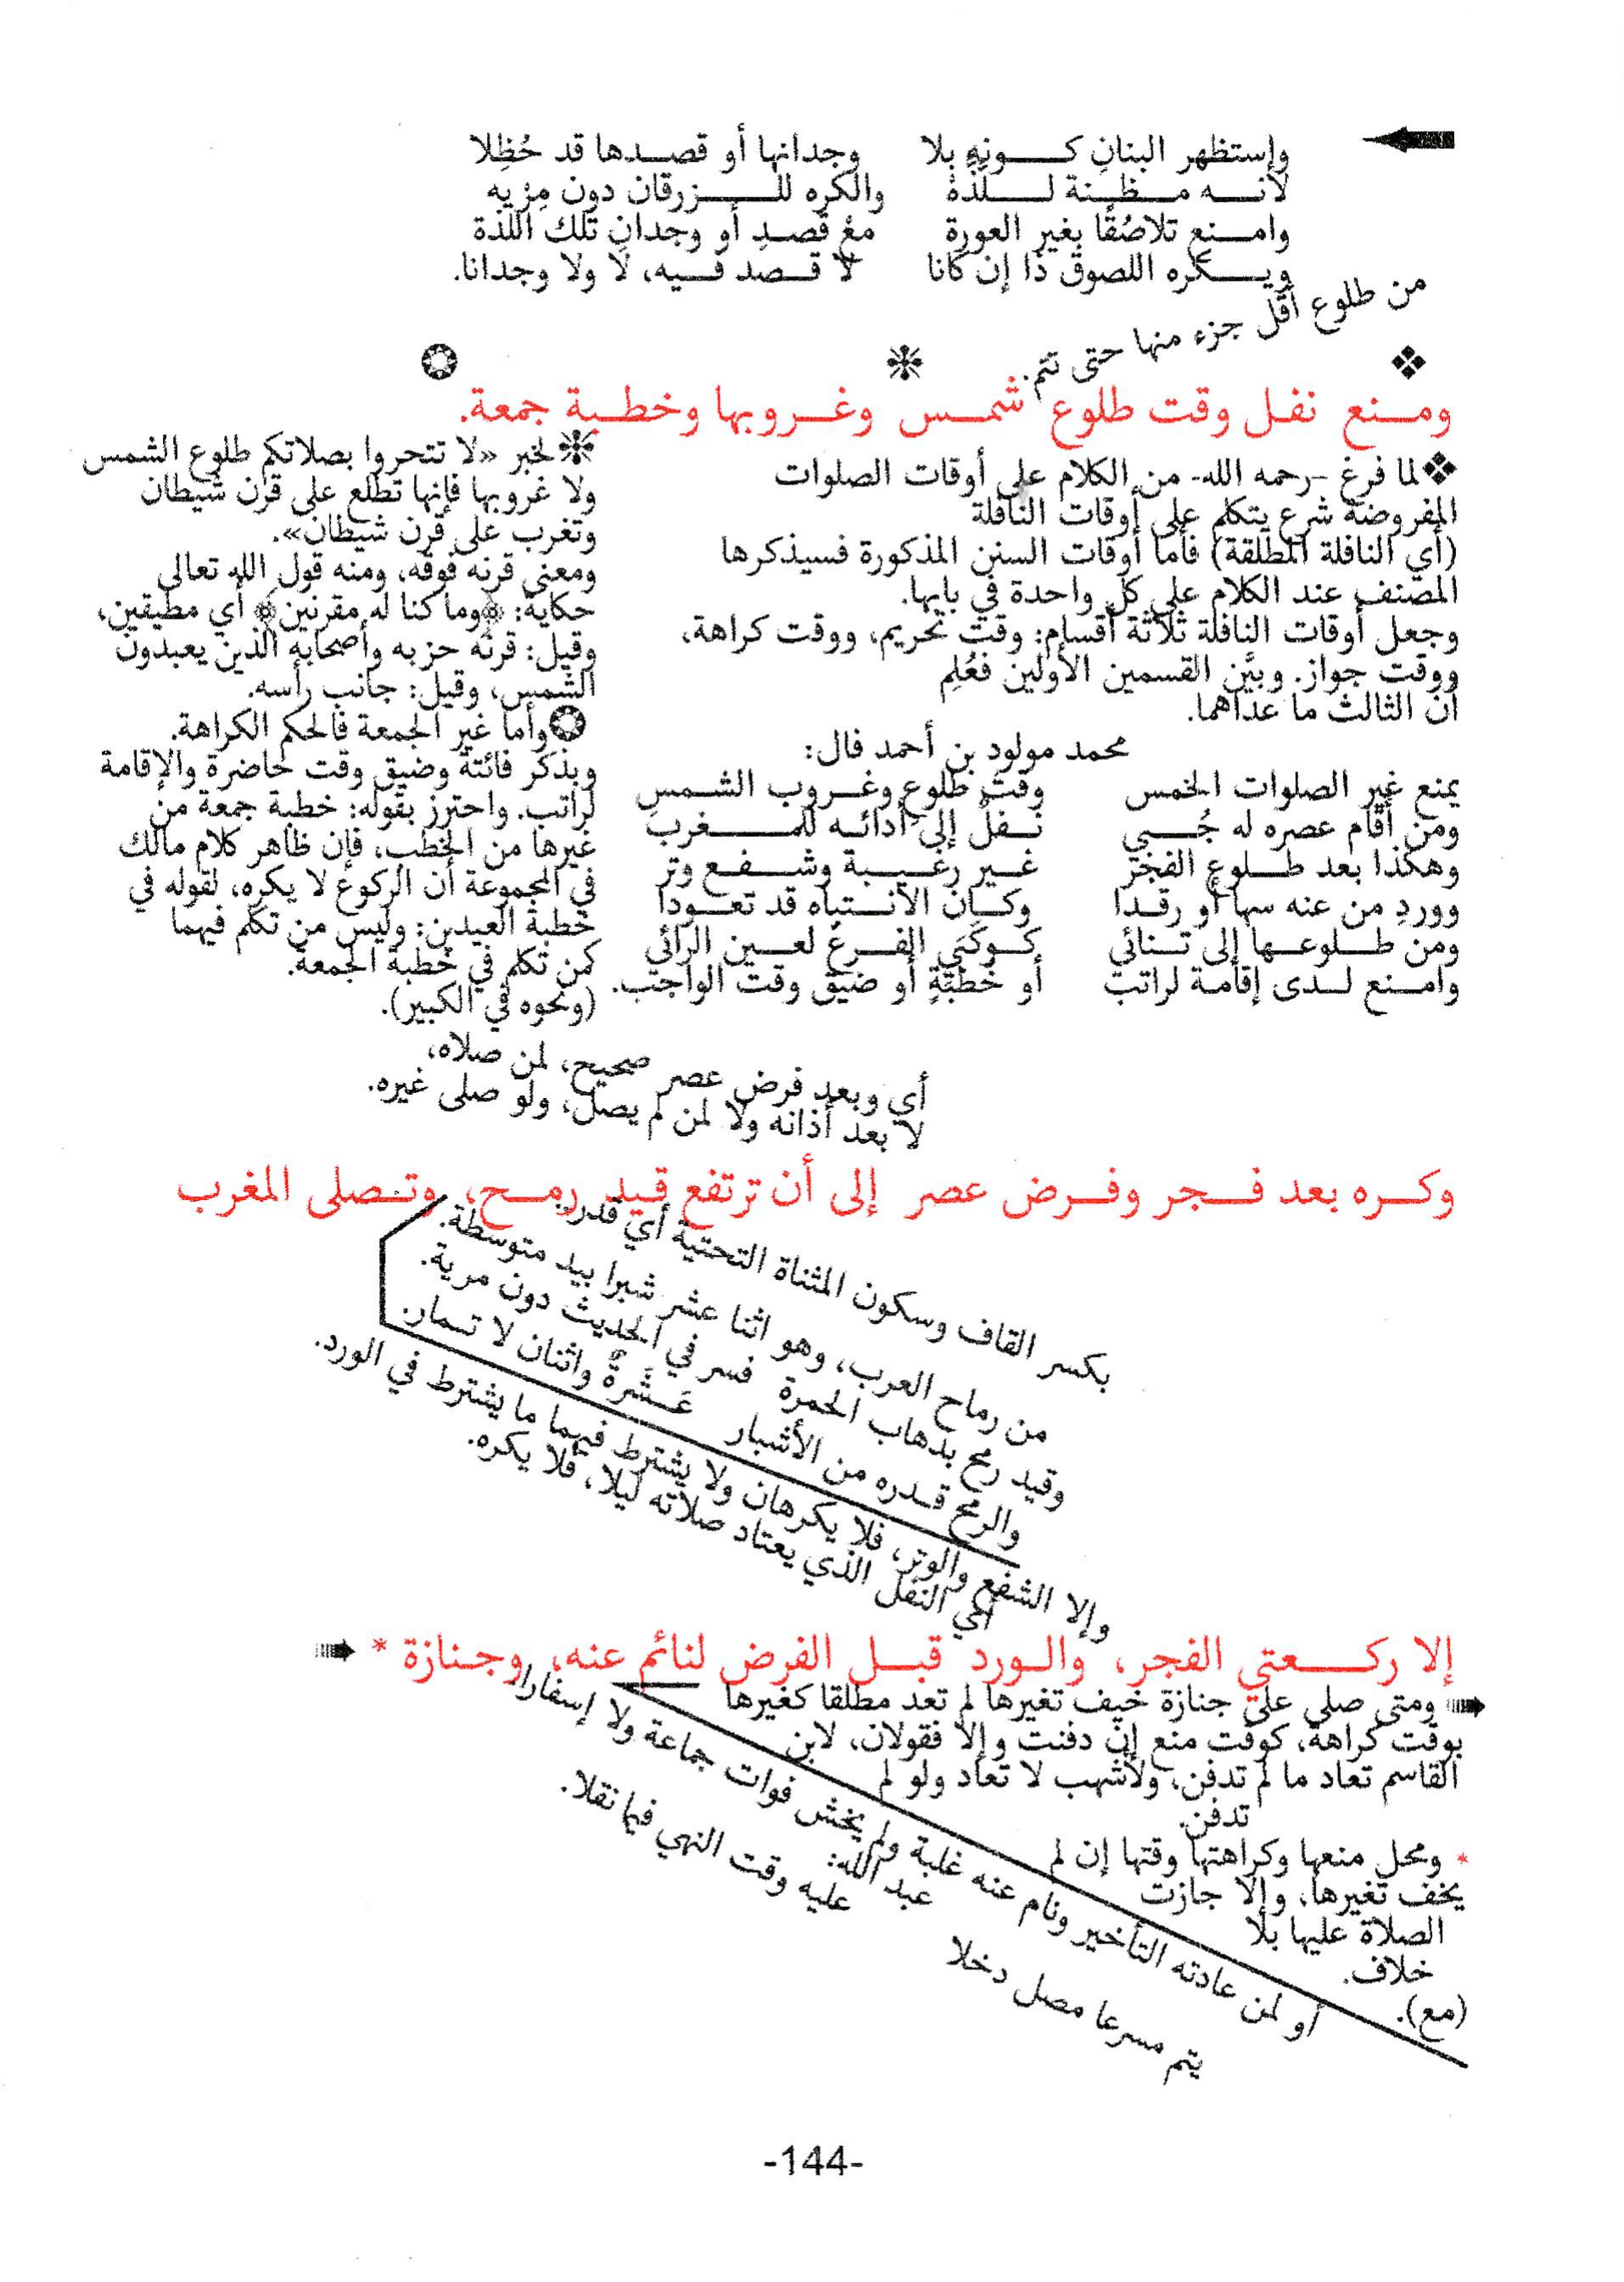 واستظهر البنانِ كونه بلا وجدانها أو قصدها قد حُظِلا
لأنه مظنة للذة والكره للزرقان دون مِزْيه
وامنع تلاصُقًا بغير العورة معْ قصدِ أو وجدانِ تلك اللذة
ويكره اللصوق ذا إن كانا لا قصد فيه، لا ولا وجدانا.
من طلوع أقل جزء منها حتى تتم.
ومنع نفل وقت طلوع شمس وغروبها وخطبة جمعة.
لما فرغ -رحمه الله- من الكلام على أوقات الصلوات
المفروضة شرع يتكلم على أوقات النافلة
(أي النافلة المطلقة) فأما أوقات السنن المذكورة فسيذكرها
المصنف عند الكلام على كل واحدة في بابها.
وجعل أوقات النافلة ثلاثة أقسام: وقت تحريم، ووقت كراهة،
ووقت جواز. وبيَّن القسمين الأولين فعُلِم
أن الثالث ما عداهما.
محمد مولود بن أحمد فال:
يمنع غير الصلوات الخمس وقتَ طلوعِ وغروب الشمسِ
ومن أقام عصره له جُبي نفلٌ إلى أدائه للمغرب
وهكذا بعد طلوع الفجر غير رغيبة وشفع وتر
ووردِ من عنه سها أو رقدا وكان الانتباه قد تعودا
ومن طلوعها إلى تنائي كوكبي الفرغ لعين الرائي
وامنع لدى إقامة لراتب أو خُطبَةٍ أو ضيق وقت الواجب.
لخبر «لا تتحروا بصلاتكم طلوع الشمس
ولا غروبها فإنها تطلع على قرن شيطان
وتغرب على قرن شيطان».
ومعنى قرنه فوقه، ومنه قول الله تعالى
حكاية: ﴿وما كنا له مقرنين﴾ أي مطيقين،
وقيل: قرنه حزبه وأصحابه الذين يعبدون
الشمس، وقيل: جانب رأسه.
وأما غير الجمعة فالحكم الكراهة.
وبذكر فائتة وضيق وقت حاضرة والإقامة
لراتب. واحترز بقوله: خطبة جمعة من
غيرها من الخطب، فإن ظاهر كلام مالك
في المجموعة أن الركوع لا يكره، لقوله في
خطبة العيدين: وليس من تكلم فيهما
كمن تكلم في خطبة الجمعة.
(ونحوه في الكبير).
أي وبعد فرض عصر صحيح، لمن صلاه،
لا بعد أذانه ولا لمن لم يصل، ولو صلى غيره.
وكره بعد فجر وفرض عصر إلى أن ترتفع قيد رمح، وتصلى المغرب
بكسر القاف وسكون المثناة التحتية أي قدر:
من رماح العرب، وهو اثنا عشر شبرا بيد متوسطة.
وقيد رمح بذهاب الحمرة فسر في الحديث دون مرية.
والرمح قدره من الأشبار عَشَرةٌ واثنان لا تمار.
وإلا الشفع والوتر، فلا يكرهان ولا يشترط فيهما ما يشترط في الورد.
أي النفل الذي يعتاد صلاته ليلا، فلا يكره.
إلا ركعتي الفجر، والورد قبل الفرض لنائم عنه، وجنازة *
ومتى صلي على جنازة خيف تغيرها لم تعد مطلقا كغيرها
بوقت كراهة، كوقت منع إن دفنت وإلا فقولان، لابن
القاسم تعاد ما لم تدفن، ولأشهب لا تعاد ولو لم
تدفن.
* ومحل منعها وكراهتها وقتها إن لم
يخف تغيرها، وإلا جازت
الصلاة عليها بلا
خلاف.
(مع).
أو لمن عادته التأخير ونام عنه غلبة ولم يخش فوات جماعة ولا إسفارا.
عبد الله:
يتم مسرعا مصل دخلا عليه وقت النهي فيما نقلا.
-144-